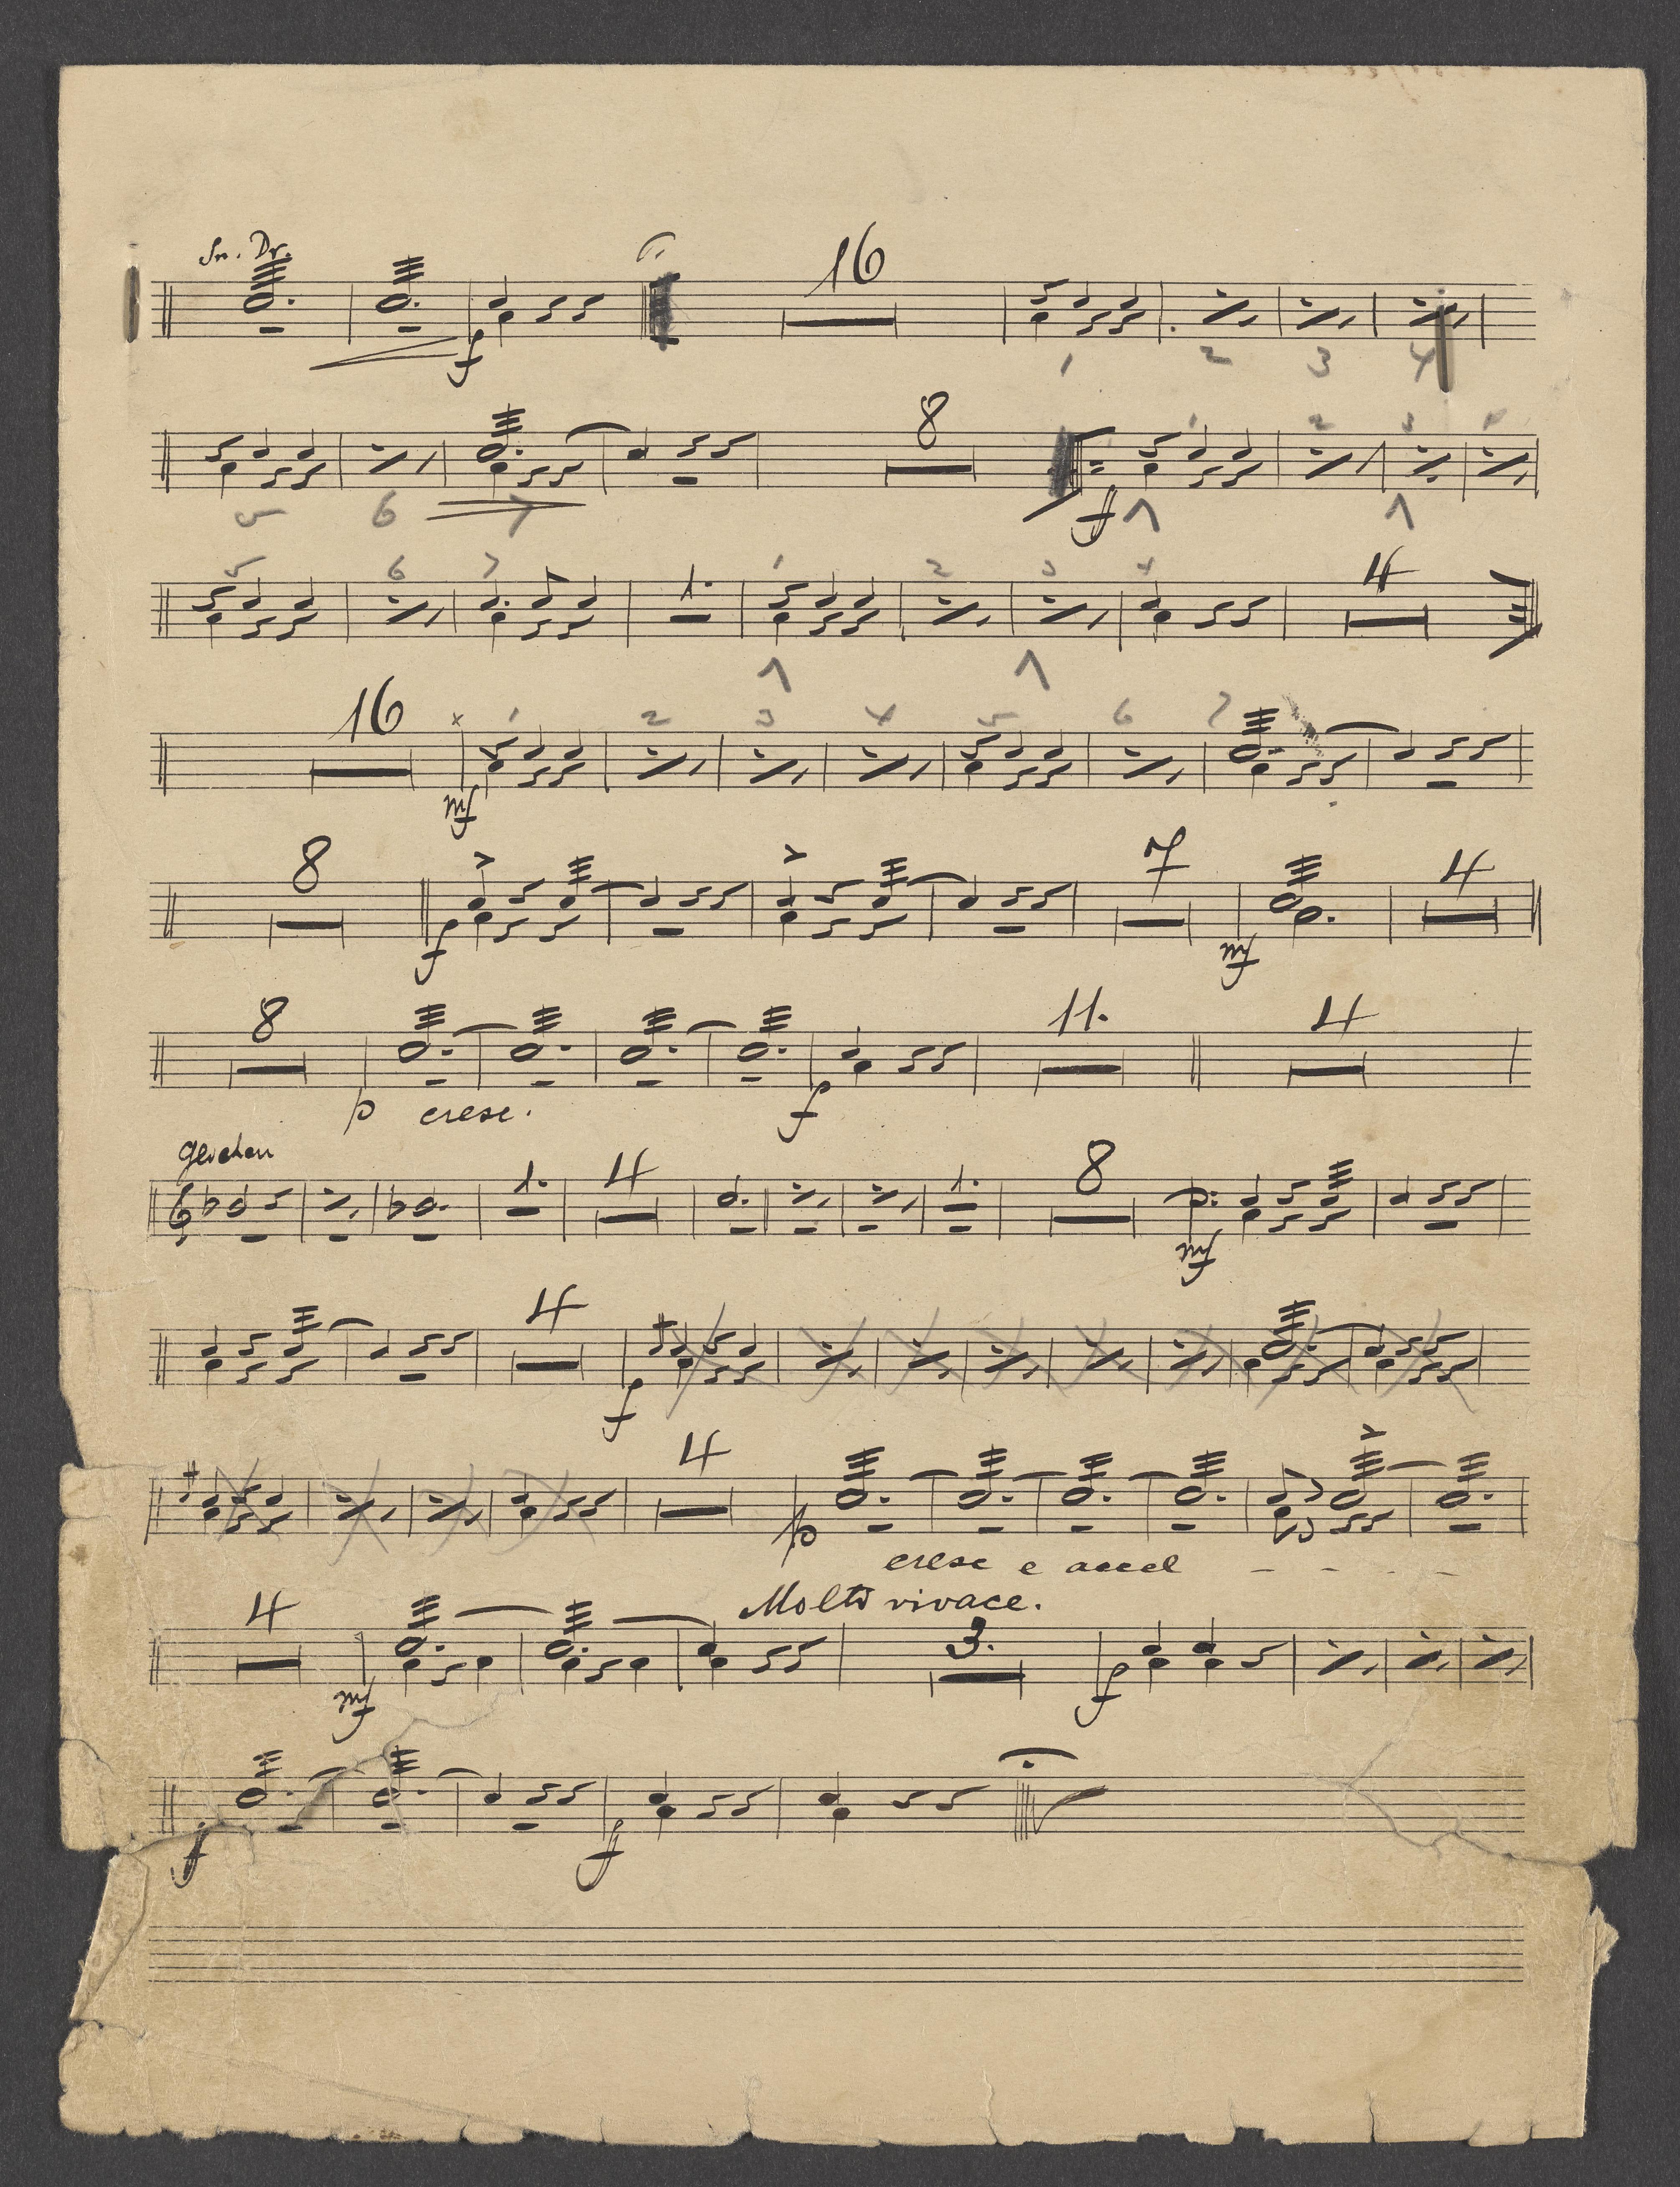 Sn. Dr.
16
f
1 2 3 4
8
1 2 3 4
5 6 7
f
5 6 7 1 2 3 4 4
1.
16
1 2 3 4 5 6 7
mf
8 7 4
f mf
8 11. 4
p cresc. f
1. 4 1. 8
mf
4
f
4
p
cresc e accel - - - -
4 Molto vivace.
3.
mf f
f f